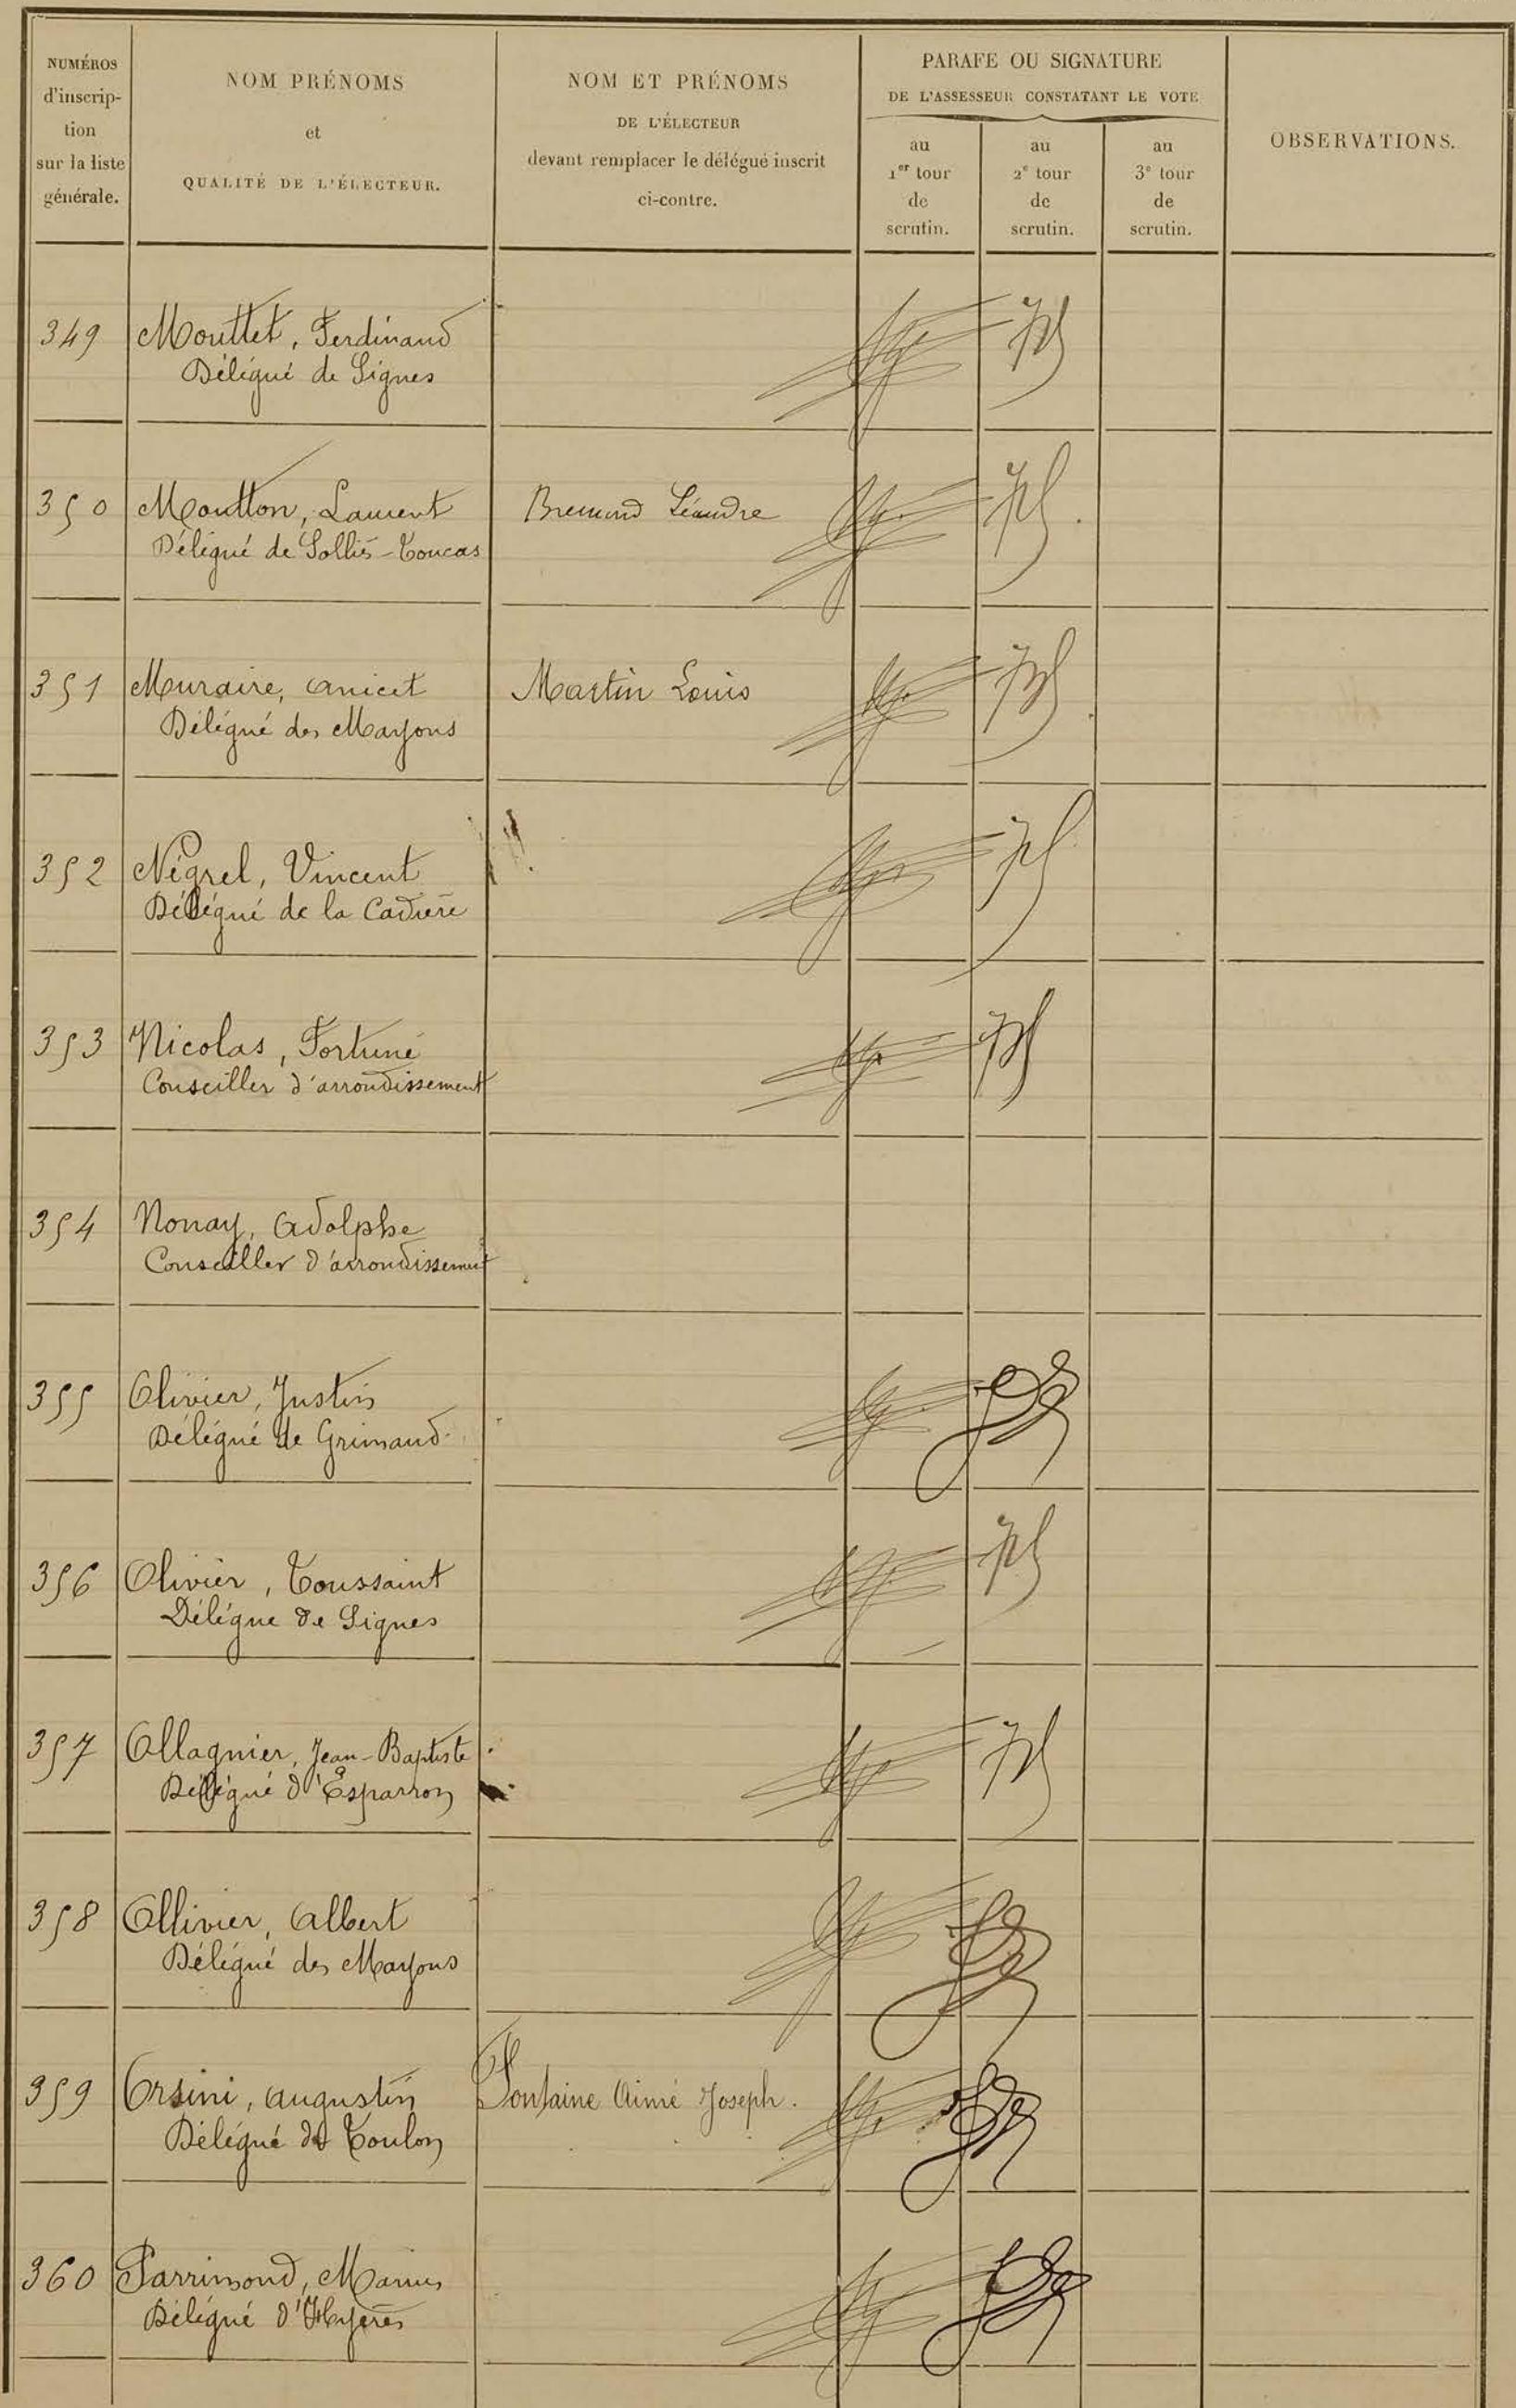 NUMÉROS
d'inscrip-
tion
sur la liste
générale.
NOM PRÉNOMS
et
QUALITÉ DE L'ÉLECTEUR.
NOM ET PRÉNOMS
DE L'ÉLECTEUR
devant remplacer le délégué inscrit
ci-contre.
PARAFE OU SIGNATURE
DE L'ASSESSEUR CONSTATANT LE VOTE
au
1er tour
de
scrutin.
au
2e tour
de
scrutin.
au
3e tour
de
scrutin.
OBSERVATIONS.
349 Mouttet, Ferdinand
Délégué de Signes
350 Moutton, Laurent Bremond Léandre
Délégué de Solliès-Toucas
351 Muraire, Anicet Martin Louis
Délégué des Mayons
352 Négrel, Vincent
Délégué de la Cadière
353 Nicolas, Fortuné
Conseiller d'arrondissement
354 Nonay, Adolphe
Conseiller d'arrondissement
355 Olivier, Justin
Délégué de Grimaud
356 Olivier, Toussaint
Délégué de Signes
357 Ollagnier, Jean-Baptiste
Délégué d'Esparron
358 Ollivier, Albert
Délégué des Mayons
359 Orsini, Augustin Fontaine Aimé Joseph.
Délégué de Toulon
360 Parrimond, Marius
Délégué d'Hyères